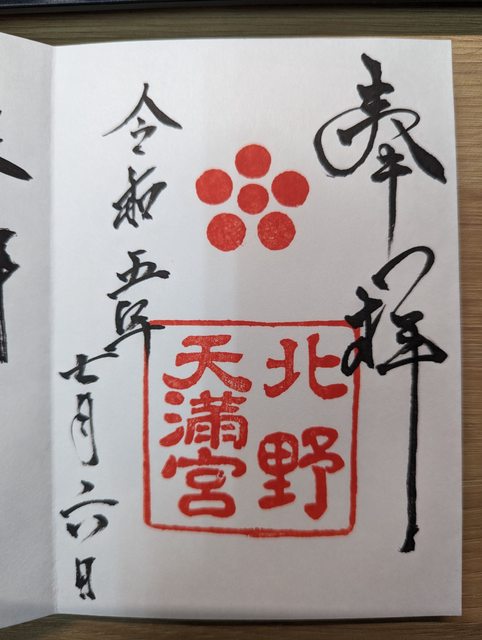 奉拝
北野
天満宮
令和五年
七月六日